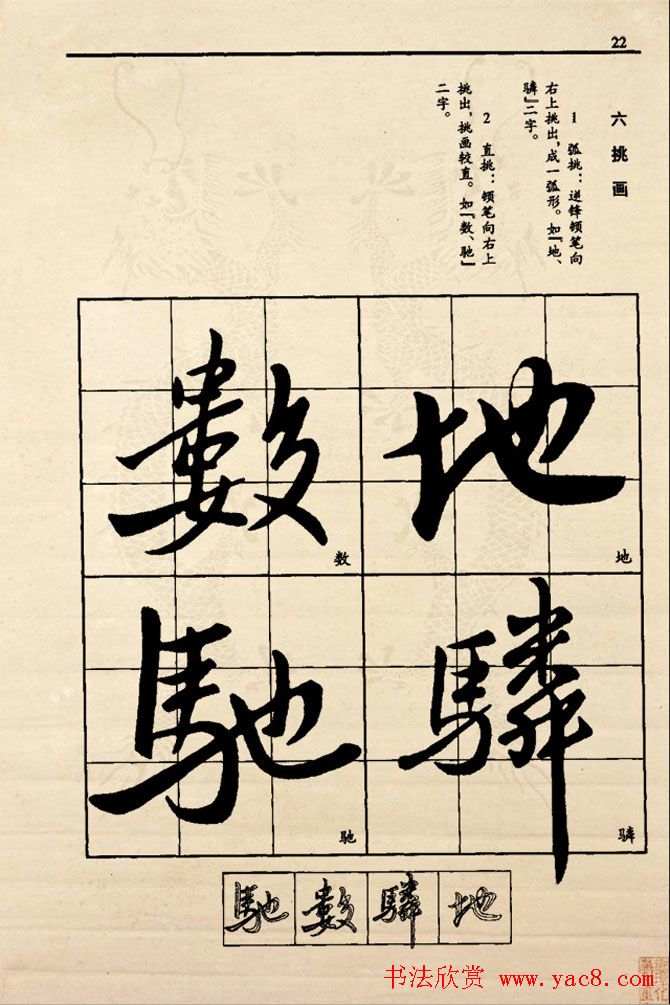 22
六 挑 画
1 弧挑：逆锋顿笔向
右上挑出，成一弧形。如『地、
驎』二字。
2 直挑：顿笔向右上
挑出，挑画较直。如『数、驰』
二字。
地
地
驎
驎
數
数
馳
驰
馳 數 驎 地
书法欣赏 www.yac8.com